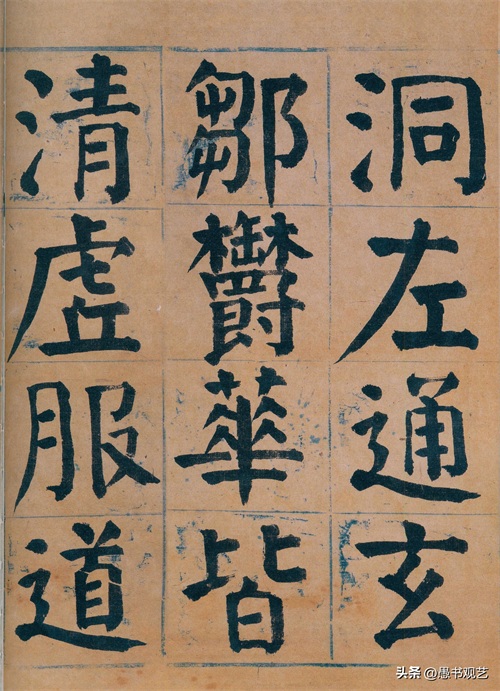 洞左通玄
鄒欝華皆
清虛服道
头条 @愚书观艺